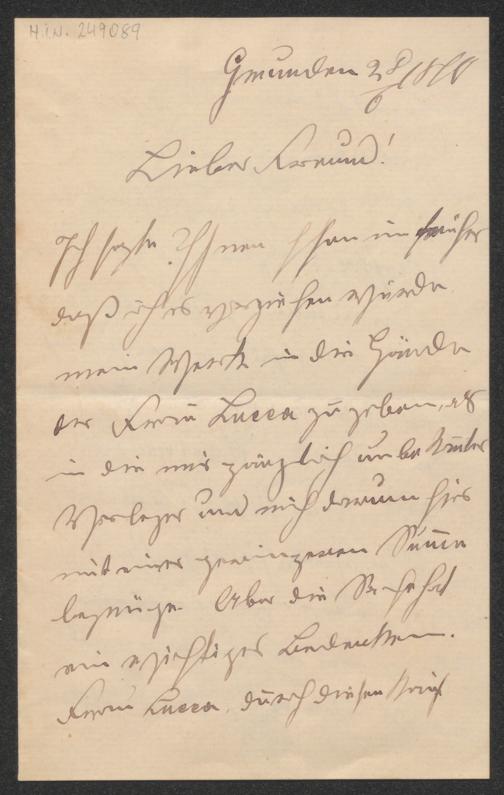 H.I.N. 249089
Gmunden 28/6
Lieber Freund!
Ich sagte Ihnen schon im früher
daß ich es vorziehen würde
mein Werk in die Hände
der Frau Lucca zu geben, als
in die mir gänzlich unbekannter
Verleger und mich darum hier
mit einer geringeren Summe
begnüge. Aber die Sache hat
ein wichtiges Bedenken.
Frau Lucca, durch diesen